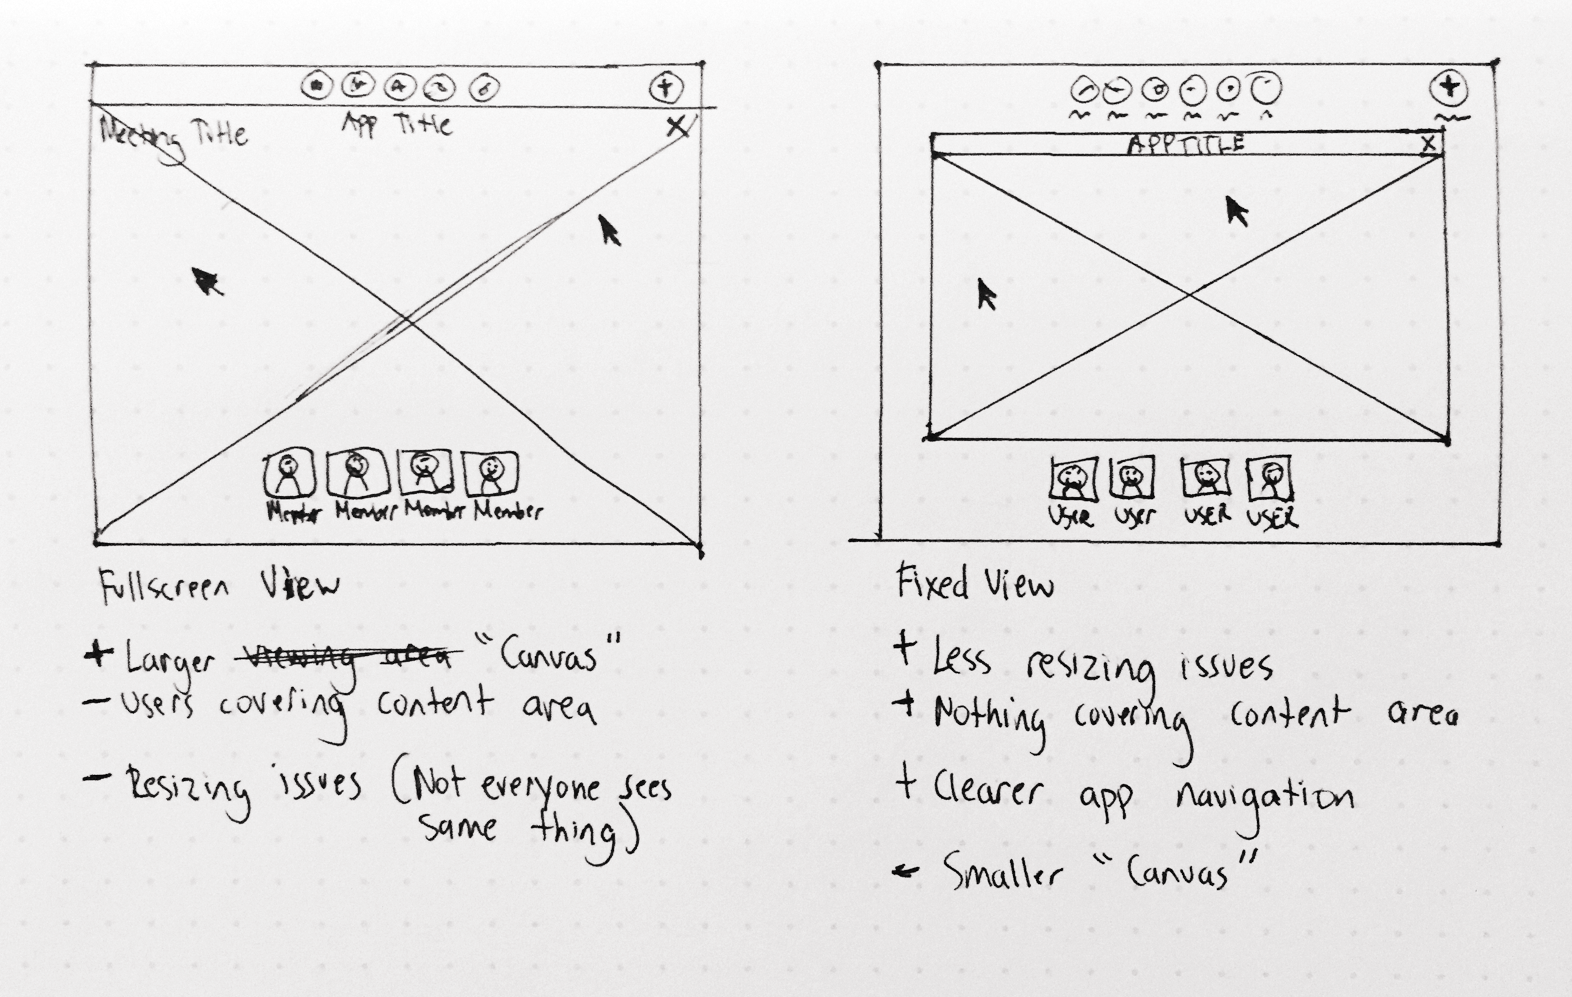 Meeting Title
App Title
X
Member Member Member Member
Fullscreen View
+ Larger viewing area "Canvas"
- Users covering content area
- Resizing issues (Not everyone sees
same thing)
APP TITLE
X
USER USer USER USER
Fixed View
+ Less resizing issues
+ Nothing covering content area
+ Clearer app navigation
- Smaller "Canvas"